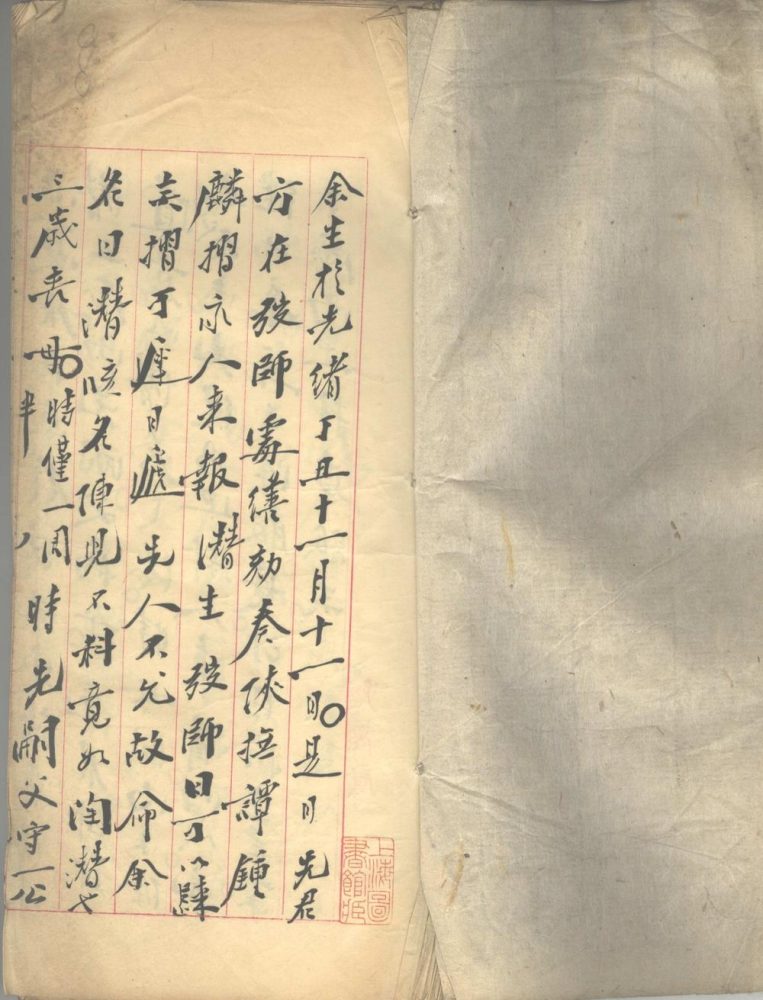 余生於光緒丁丑十一月十一日○是日先君
方在弢師處繕劾奏陝撫譚鍾
麟摺家人來報潛生弢師曰可以歸
矣摺可遲日遞先人不允故命余
名曰潛咳名陳兒不料竟如陶潛也
三歲喪母○時僅一周半 時先嗣父守一公
上海圖書館藏